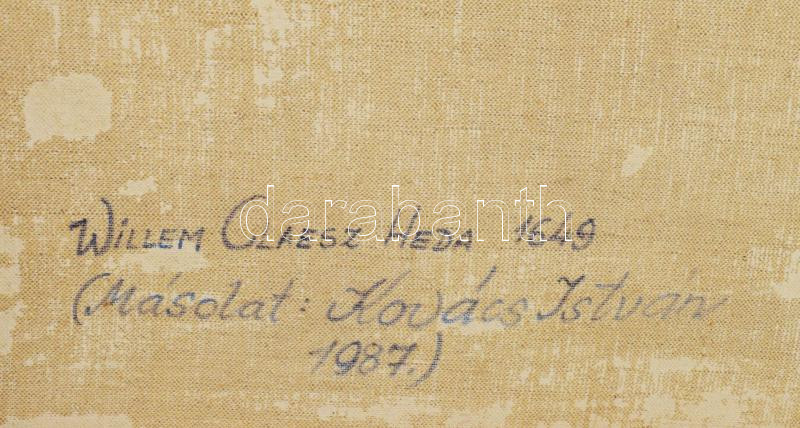 Willem Claesz Heda 1649
(Másolat: Kovács István
1987.)
darabanth